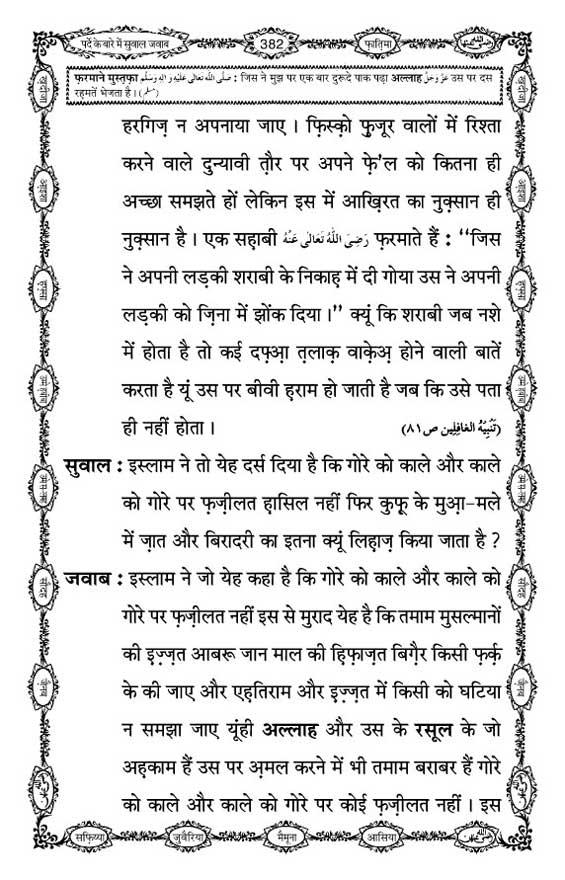 पर्दे के बारे में सुवाल जवाब
382
फ़ातिमा
फ़रमाने मुस्तफ़ा صَلَّى اللّٰهُ تَعَالٰى عَلَيْهِ وَاٰلِهٖ وَسَلَّم : जिस ने मुझ पर एक बार दुरूदे पाक पढ़ा अल्लाह عَزَّوَجَلَّ उस पर दस
रहमतें भेजता है । (مسلم)
हरगिज़ न अपनाया जाए । फ़िस्क़ो फ़ुजूर वालों में रिश्ता
करने वाले दुन्यावी तौ़र पर अपने फ़े'ल को कितना ही
अच्छा समझते हों लेकिन इस में आख़िरत का नुक़्सान ही
नुक़्सान है । एक सह़ाबी رَضِىَ اللّٰهُ تَعَالٰى عَنْهُ फ़रमाते हैं : ‘‘जिस
ने अपनी लड़की शराबी के निकाह़ में दी गोया उस ने अपनी
लड़की को ज़िना में झोंक दिया ।’’ क्यूं कि शराबी जब नशे
में होता है तो कई दफ़्आ़ त़लाक़ वाके़अ़ होने वाली बातें
करता है यूं उस पर बीवी ह़राम हो जाती है जब कि उसे पता
ही नहीं होता । (تَنْبِيْهُ الغافِلين ص٨١)
सुवाल : इस्लाम ने तो येह दर्स दिया है कि गोरे को काले और काले
को गोरे पर फ़ज़ीलत ह़ासिल नहीं फिर कुफ़ू के मुआ़-मले
में ज़ात और बिरादरी का इतना क्यूं लिह़ाज़ किया जाता है ?
जवाब : इस्लाम ने जो येह कहा है कि गोरे को काले और काले को
गोरे पर फ़ज़ीलत नहीं इस से मुराद येह है कि तमाम मुसल्मानों
की इ़ज़्ज़त आबरू जान माल की ह़िफ़ाज़त बिग़ैर किसी फ़र्क़
के की जाए और एह़तिराम और इ़ज़्ज़त में किसी को घटिया
न समझा जाए यूंही अल्लाह और उस के रसूल के जो
अह़काम हैं उस पर अ़मल करने में भी तमाम बराबर हैं गोरे
को काले और काले को गोरे पर कोई फ़ज़ीलत नहीं । इस
सफ़िय्या
जुवैरिया
मैमूना
आसिया